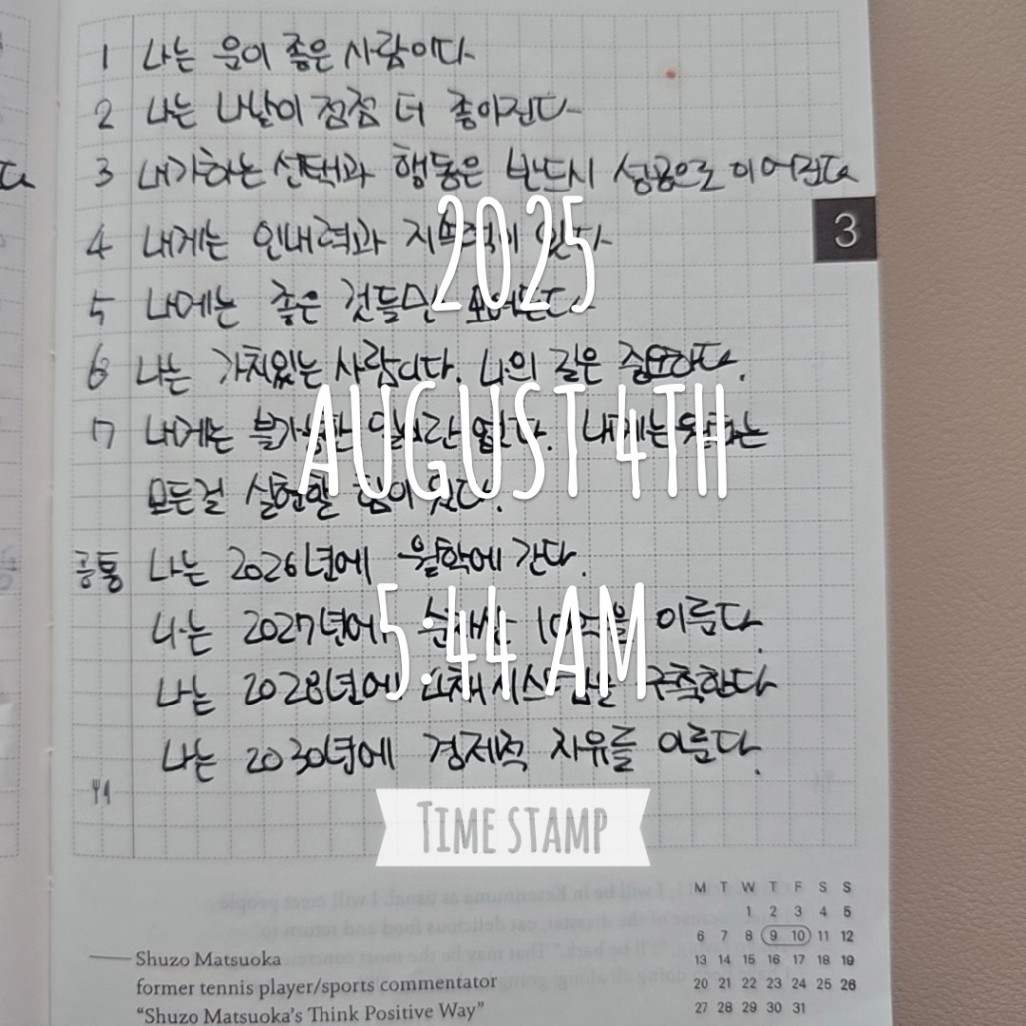 1 나는 운이 좋은 사람이다
2 나는 나날이 점점 더 좋아진다
3 내가하는 선택과 행동은 반드시 성공으로 이어진다
3
4 내게는 인내력과 있다
2025
5 나에게는 좋은 것들만 모여든다
6 나는 가치있는 사람이다. 나의 길은 중요하다.
7 내게는 불가능한 일이란 없다. 내게는 원하는
AUGUST 4TH
모든걸 실현할 힘이 있다.
공통 나는 2026년에 월학에 간다.
나는 2027년에 순재산 10억을 이룬다.
5:44 AM
나는 2028년에 구축한다
나는 2030년에 경제적 자유를 이룬다.
TIME STAMP
M T W T F S S
1 2 3 4 5
6 7 8 9 10 11 12
13 14 15 16 17 18 19
20 21 22 23 24 25 26
27 28 29 30 31
Shuzo Matsuoka
former tennis player/sports commentator
"Shuzo Matsuoka's Think Positive Way"